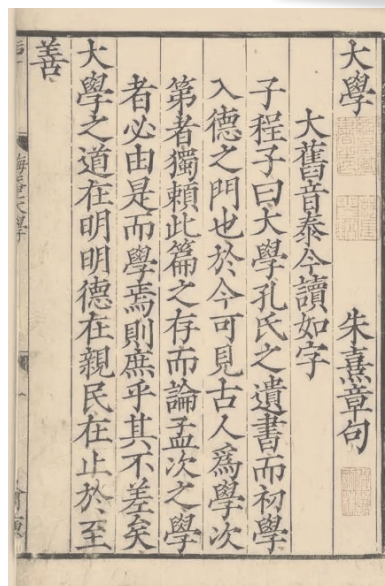 大學　朱熹章句
大舊音泰今讀如字
子程子曰大學孔氏之遺書而初學
入德之門也於今可見古人爲學次
第者獨頼此篇之存而論孟次之學
者必由是而學焉則庶乎其不差矣
大學之道在明明德在親民在止於至
善